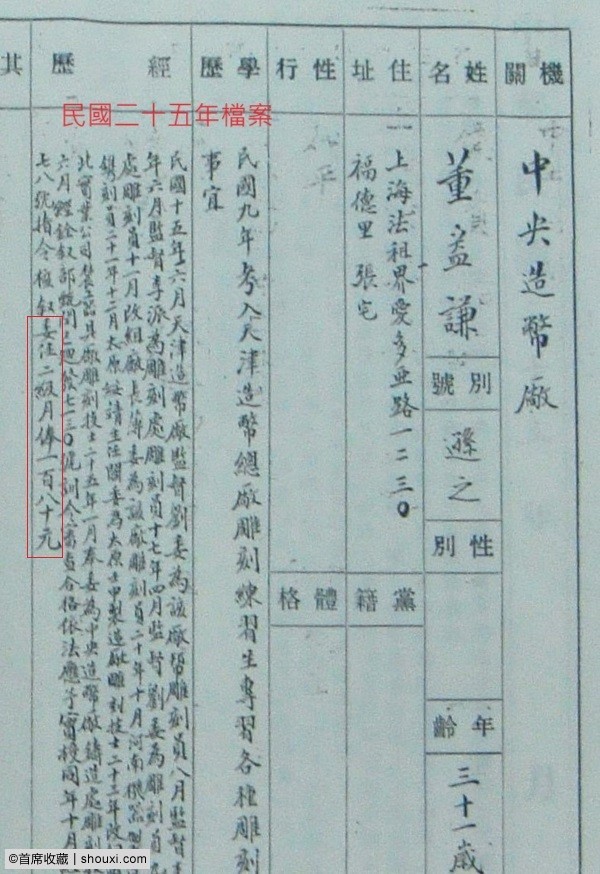 機關
中央造幣廠
姓名
董孟謙
別號
遜之
性別
年齡
三十一歲
住址
上海法租界愛多亞路一二三〇
福德里 張宅
黨籍
性行
和平
體格
學歷
民國九年考入天津造幣總廠雕刻練習生專習各種雕刻
事宜
經歷
民國十五年六月天津造幣廠監督劉委為該廠幫雕刻員八月監督李
年六月監督李派為雕刻處雕刻員十七年四月監督劉委為雕刻員
處雕刻員十一月改組廠長薄委為該廠雕刻員二十年十月河南機器
鐫刻員二十一年十二月太原綏靖主任閻委為太原士申製造廠雕刻技士二十三年改
北實業公司製造具廠雕刻技士二十五年一月奉委為中央造幣廠鑄造處雕刻
六月經銓敘部甄發七一三〇號訓令審查合格依法應予實授同年十月
七八號指令核敘委任二級月俸一百八十元
其
民國二十五年檔案
©首席收藏 | shouxi.com